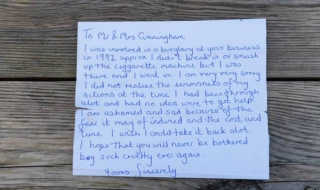 To Mr & Mrs Cunningham.
I was involved in a burglary at your business
in 1992 approx I didn't break in or smash
up the ciggarette machine but I was
there and I went in. I am very very sorry
I did not realise the seriousness of my
actions at the time I had been through
alot and had no idea were to get help
I am ashamed and sad because of the
fear it may of induced and the cost and
time I wish I could take it back alot
I hope that you will never be bothered
by such cruelty ever again.
Yours Sincerely